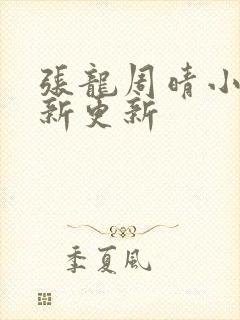 張龍周晴小
新更新
季夏風